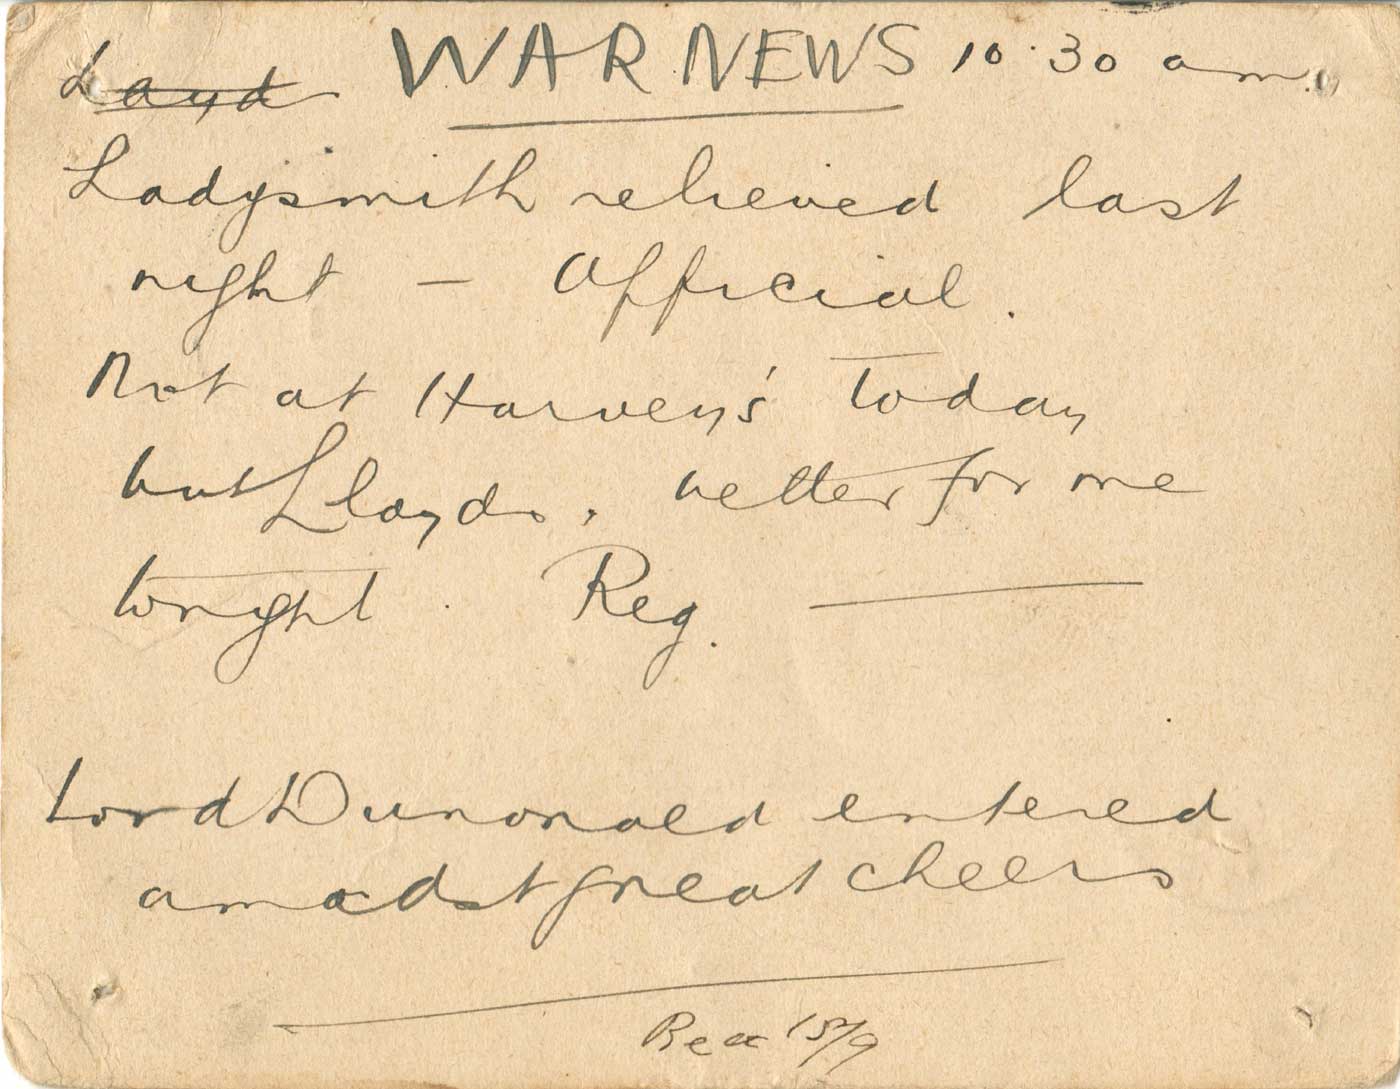 WAR NEWS 10.30 am.
Ladysmith relieved last
night — Official.
Not at Harvey's today
but Lloyds, better for me
tonight. Reg.
Lord Dunonald entered
amidst great cheers
Rec